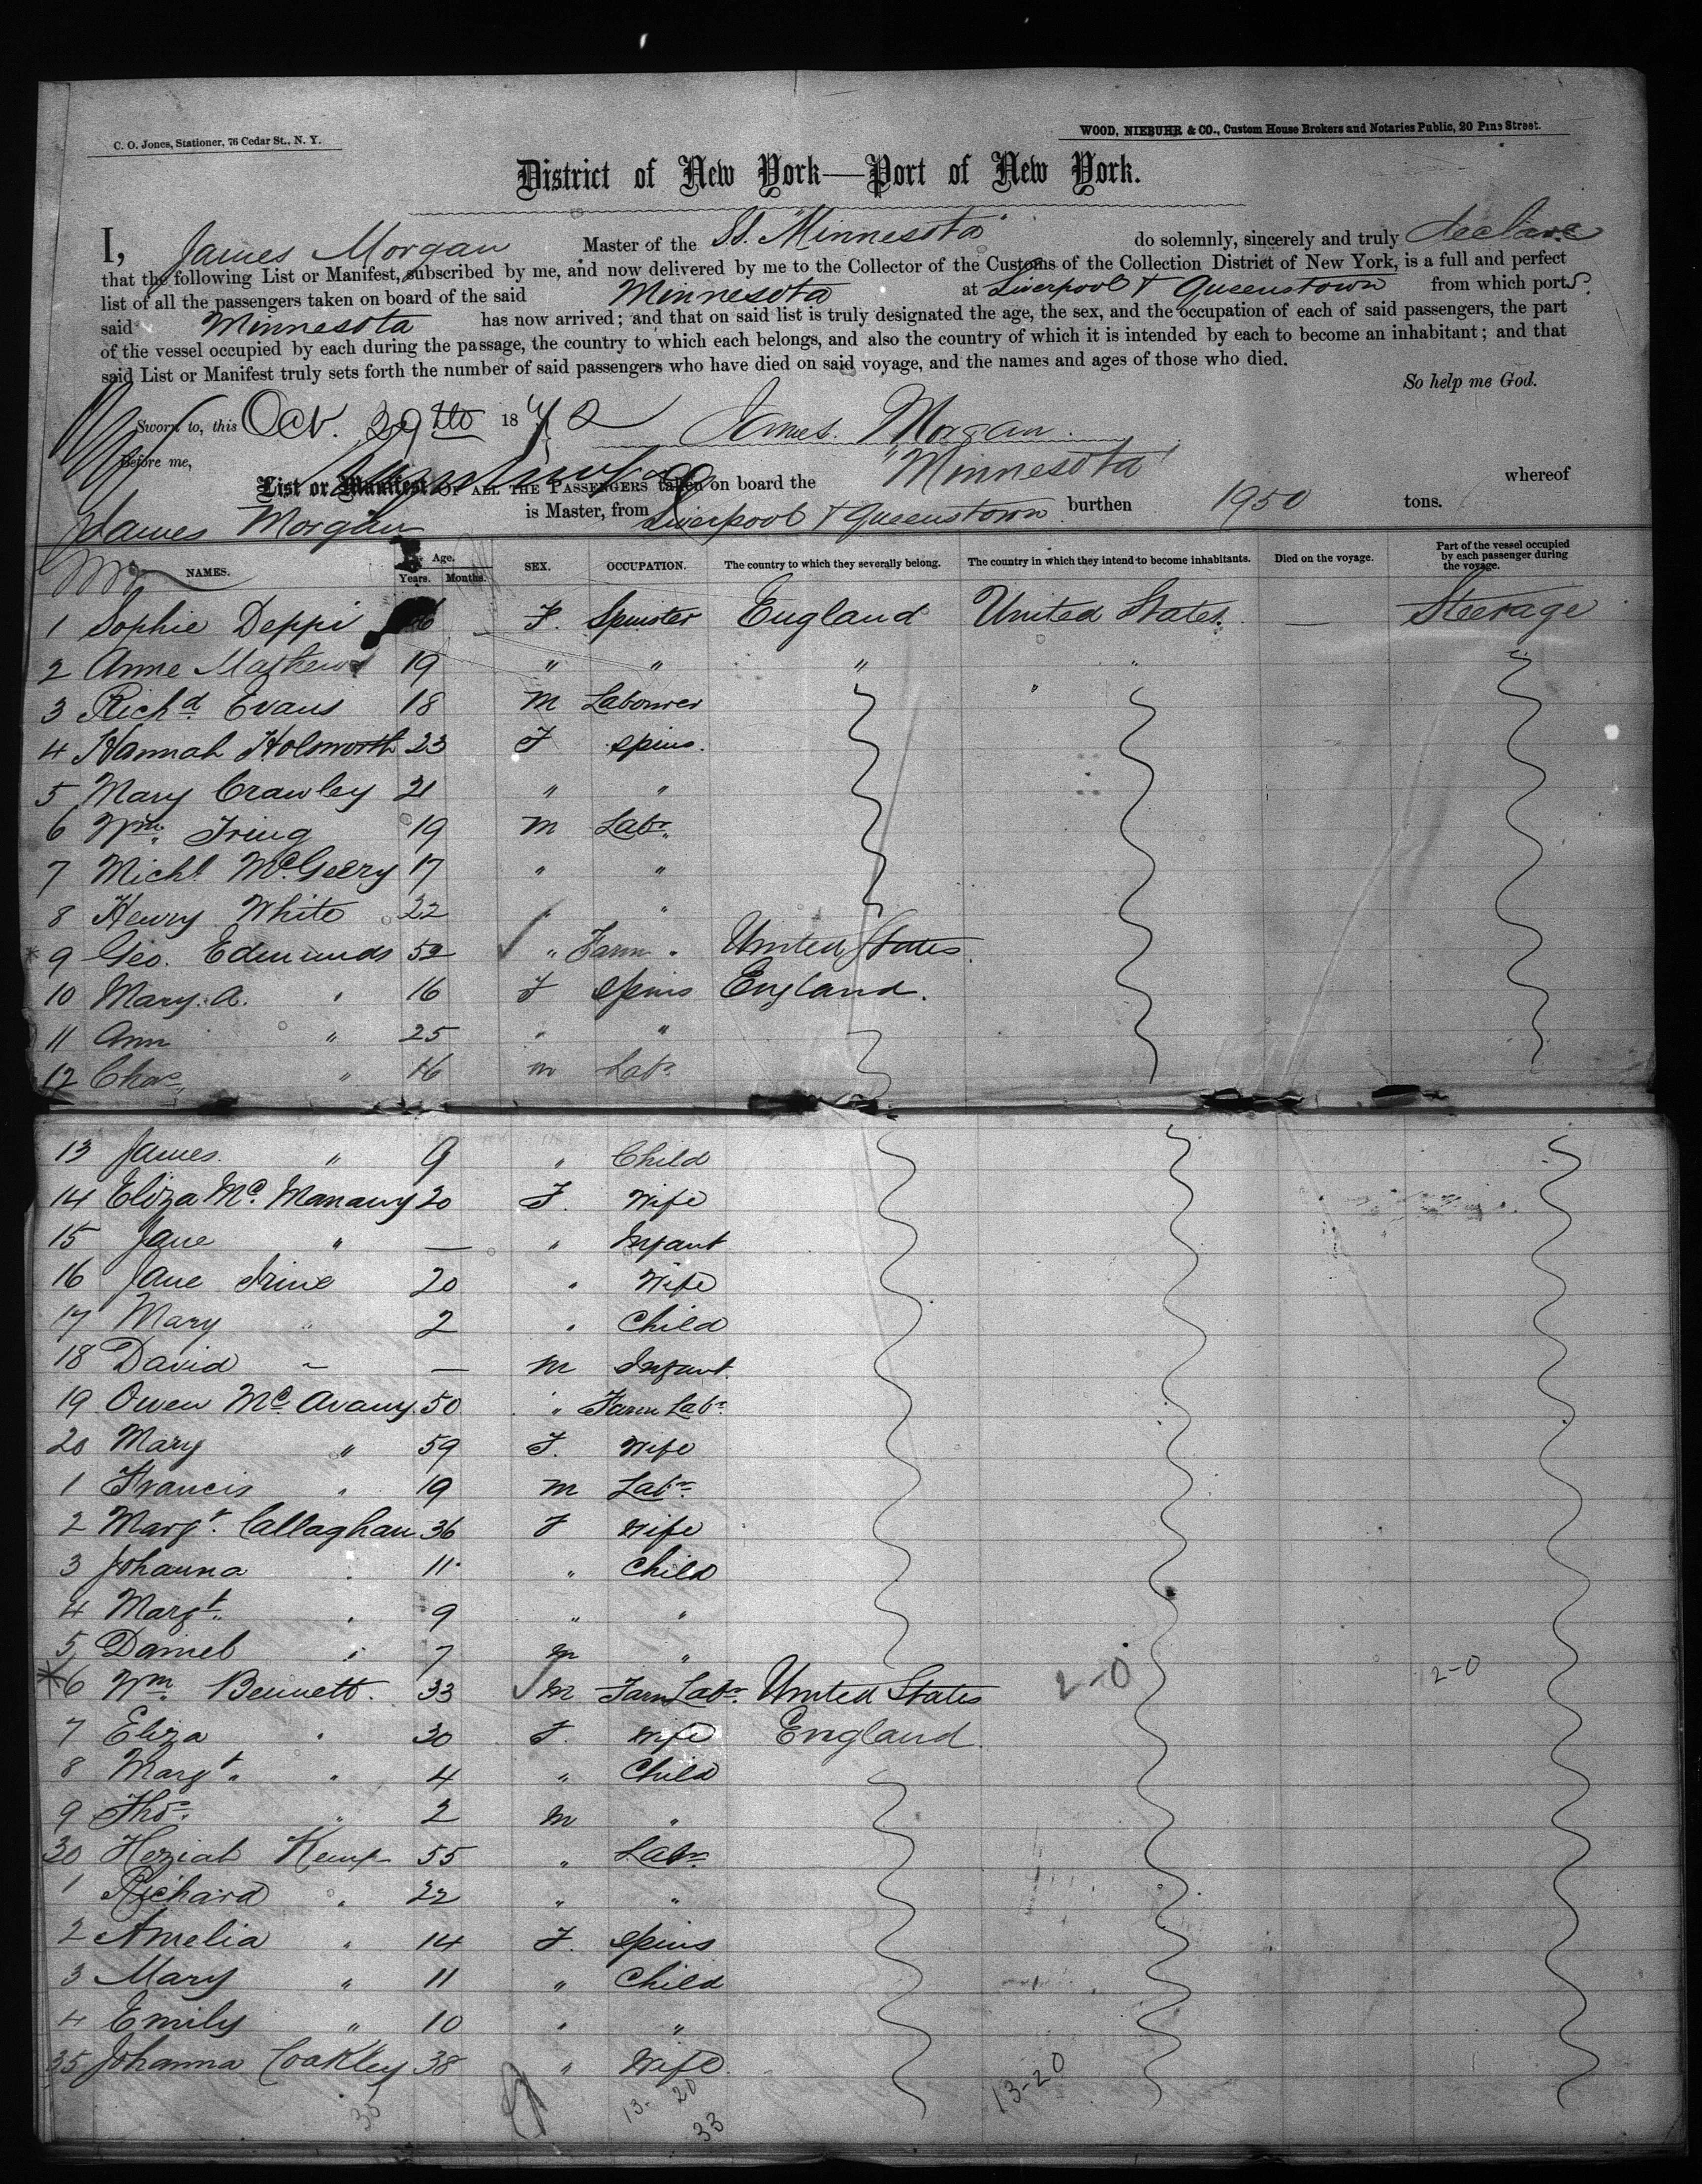 C. O. Jones, Stationer, 76 Cedar St., N. Y.
WOOD, NIEBUHR & CO., Custom House Brokers and Notaries Public, 20 Pine Street.
District of New York—Port of New York.
I, James Morgan Master of the S.S. "Minnesota" do solemnly, sincerely and truly declare
that the following List or Manifest, subscribed by me, and now delivered by me to the Collector of the Customs of the Collection District of New York, is a full and perfect
list of all the passengers taken on board of the said Minnesota at Liverpool & Queenstown from which port S.
said Minnesota has now arrived; and that on said list is truly designated the age, the sex, and the occupation of each of said passengers, the part
of the vessel occupied by each during the passage, the country to which each belongs, and also the country of which it is intended by each to become an inhabitant; and that
said List or Manifest truly sets forth the number of said passengers who have died on said voyage, and the names and ages of those who died.
So help me God.
Sworn to, this Oct. 29th 1872 James Morgan
Before me,
List or Manifest OF ALL THE PASSENGERS taken on board the "Minnesota" whereof
James Morgan is Master, from Liverpool & Queenstown burthen 1950 tons.
NAMES. Age. Years. Months. SEX. OCCUPATION. The country to which they severally belong. The country in which they intend to become inhabitants. Died on the voyage. Part of the vessel occupied by each passenger during the voyage.
1 Sophie Deppi F. Spinster England United States. — Steerage
2 Anne Mathews 19 " " " "
3 Richd. Evans 18 M Labourer "
4 Hannah Holsworth 23 F Spins.
5 Mary Crawley 21 " "
6 Wm. 19 M Labr.
7 Michl. McGeery 17 " "
8 Henry White 22 " "
9 Geo. Edmunds 52 " Farm " United States.
10 Mary. A. " 16 F Spins England.
11 Ann " 25 " "
12 Chas. " 16 m Labr.
13 James. " 9 " Child
14 Eliza Mc. Manany 20 F. Wife
15 Jane " — " Infant
16 Jane Irine 20 " Wife
17 Mary " 2 " Child
18 David " — M Infant.
19 Owen Mc. Avany. 50 " Farm Labr.
20 Mary " 59 F. Wife
1 Francis " 19 M Labr.
2 Margt. Callaghan 36 F Wife
3 Johanna " 11 " Child
4 Margt. " 9 " "
5 Daniel " 7 m "
*6 Wm. Bennett. 33 M Farm Labr. United States 2-0 2-0
7 Eliza " 30 F. Wife England
8 Margt. " 4 " Child
9 Thos. " 2 M "
30 Heziah Kemp 55 " Labr.
1 Richard " 22 " "
2 Amelia " 14 F. Spins
3 Mary " 11 " Child
4 Emily " 10 " "
35 Johanna Coakley 38 " Wife.
35 13-20 13-20
33